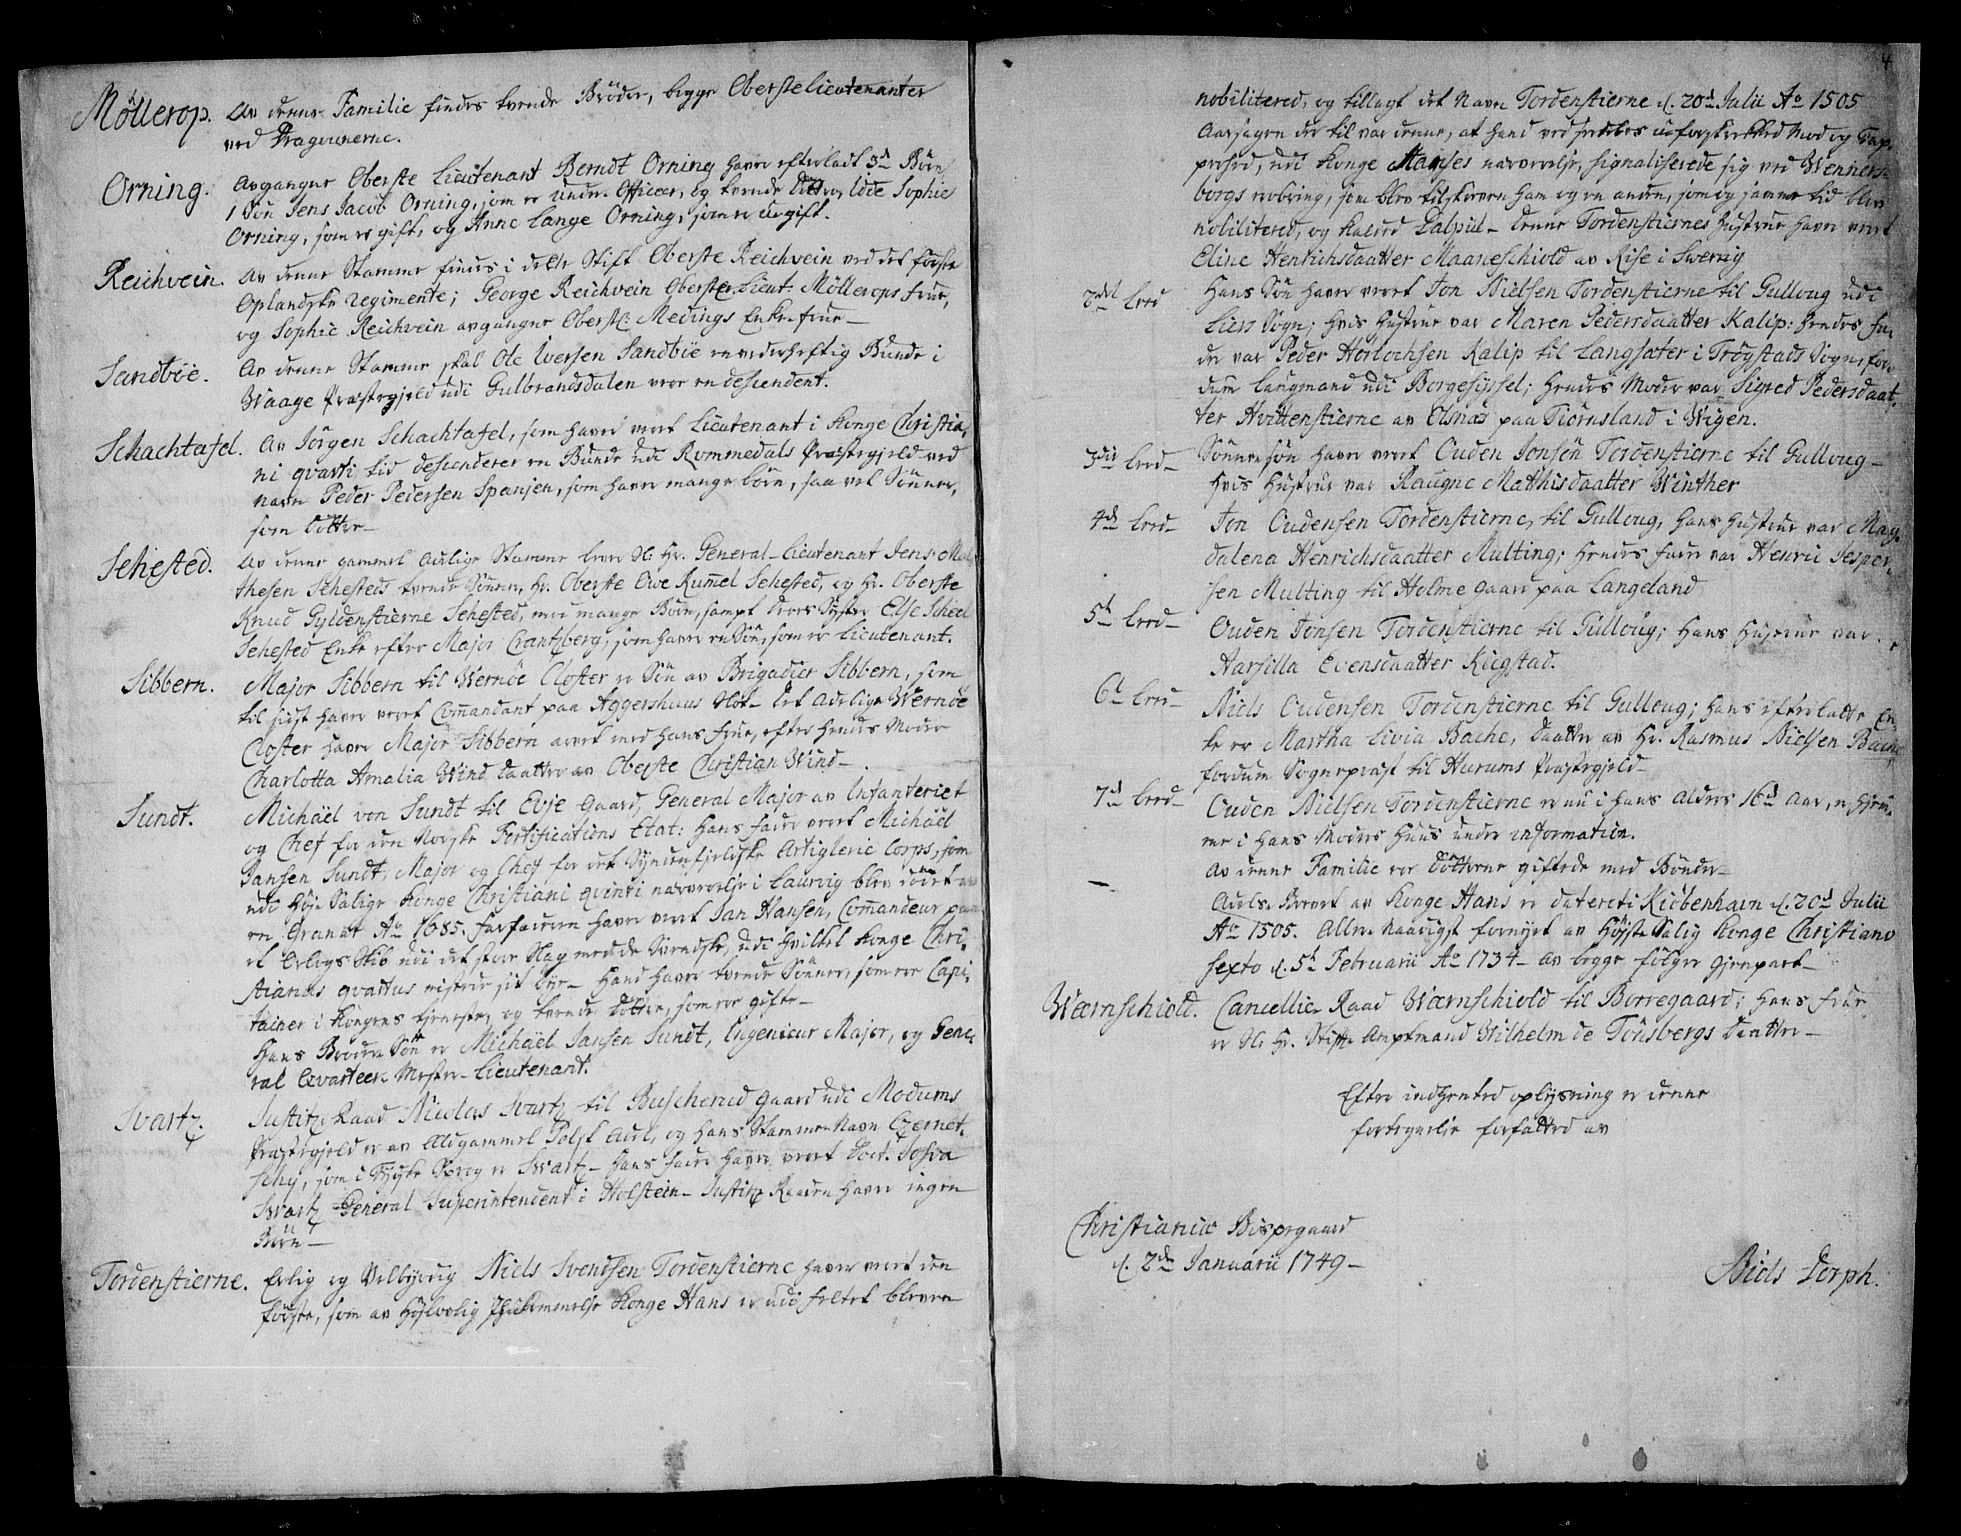 Möllerop. Av denne Familie findes tvende Brøder, begge Obersteleutenanter
ved Dragounerne.
Orning. Avgangne Oberste Lieutenant Berndt Orning haver efterladt 3de Børn
1 Søn Jens Jacob Orning, som er under Officeer, og tvende Døttre, Idie Sophie
Orning, som er gift, og Anne Lange Orning, som er ugift.
Reichvein. Av denne Stamme findes i dette Stift Oberste Reichvein ved det første
Oplandske regimente; George Reichvein Oberste Lieut. Möllerops frue,
og Sophie Reichvein avgangne Oberstl: Medings Enke-frue –
Sandböe. Av denne Stamme skal Ole Iversen Sandböe en vederheftig Bunde i
Waage Præstegjeld udi Gulbrandsdalen være en descendent.
Schachtafel. Av Jörgen Schachtafel, som haver vært Lieutenant i Konge Christia,
ni qvarti tid descenderer en Bunde udi Rommedals Præstegjeld ved
navn Peder Pedersen Spanjen, som haver mange börn, saa vel Sönner,
som Döttre –
Sehested. Av denne gammel adelige Stamme lever Sl: Hr. General-Lieutenant Jens Mal
thesen Sehesteds tvende Sönner, Hr. Oberste Owe Rummel Sehested, og Hr. Oberste
Knud Gyldenstierne Sehested, med mange Börn, sampt deres Syster Else Scheel
Sehested Enke efter Major Crantzberg, som haver en Sön, som er Lieutenant.
Sibbern. Major Sibbern til Wernöe Closter er Sön av Brigadier Sibbern, som
til sidst haver været Commandant paa Aggershuus Slot – Det Adelige Wernöe
Closter haver Major Sibbern arvet med hans frue, efter hendes Moder
Charlotta Amalia Wind Daatter av Oberste Christian Wind –
Sundt. Michäel von Sundt til Evje gaard, General Major av Infanteriet
og Chef for den Norske Fortifications Etat: Hans fader vært Michäel
Jansen Sundt, Major og Chef for det Syndenfjeldske Artiglerie Corps, som
udi Høj Salige Konge Christiani qvinti nærværelse i Laurvig blev dödet av
en Granat Ao 1685. Farfaderen haver vært Jan Hansen, Commandeur paa
et Orlogs Skib udi det store Slag med de Svendske, udi hvilket Konge Chri-
stianus qvartus mistede sit öye – Hand haver tvende Sönner, som ere Capi,
tainer i Kongens tjeneste, og tvende Döttre, som ere gifte –
Hans Broders Sön er Michäel Jansen Sundt, Ingenieur Major, og Gene
ral Qvarteer-Mester-Lieutenant.
Svartz. Justitz-Raad Nicolas Svartz til Buscherud gaard udi Modums
Præstegjeld er av Aldgammel Polsk Adel, og hans Stamme Navn Czernet,
schy, som i Tydsk Sprog er Svartz – Hans fader haver vært Doct. Josva
Svartz General Superintendent i Holstein – Justitz Raaden haver ingen
Börn –
Tordenstierne. Erlig og Velbyrdig Niels Svendsen Tordenstierne haver vært den
første, som av Høylovlig Ihukommelse Konge Hans er udi feltet bleven
4
nobilitered, og tillagt det Navn Tordenstierne d. 20d Julii Ao 1505
Aarsagen der til var denne, at hand ved uforskrekked Mod og Tap-
perhed, udi Konge nærværelse, signaliserede sig ved Wenners-
borgs erobring, som blev tilskreven ham og en anden, som og samme tid blev
nobilitered, og kalded – denne Tordenstiernes hustrue haver vært
Eline Henrichsdaatter Maaneschiold av Rise i Swerrig
2det Leed Hans Sön haver vært Jon Nielsen Tordenstierne til Gulloug udi
Liers Sogn; Hvis Hustrue var Maren Pedersdaatter Kalip: hendes fa-
der var Peder Horlochsen Kalip til Langsæter i Trögstads Sogn, for
dum Laugmand udi Borgesyssel; hendes Moder var Sigred Pedersdaat
ter Hvittenstierne av Elsnas paa Tiörnsland i Wigen.
3die Leed – Sönnesön haver vært Ouden Jonsön Tordenstierne til Gulloug –
Hvis Hustrue var Raugne Matthisdaatter Winther
4de Leed – Jon Oudensen Tordenstierne, til Gulloug, Hans Hustrue var Mag-
dalena Henrichsdaatter Multing; hendes fader var Henric Jesper-
sen Multing til Holme gaard paa Langeland
5te Leed – Ouden Jonsen Tordenstierne til Gulloug; Hans Hustrue var
Harsilla Evensdaatter Kiegstad.
6te Leed – Niels Oudensen Tordenstierne til Gulloug; Hans efterlatte En-
ke er Martha Livia Bache, Daatter av Hr. Rasmus Nielsen Bache
fordum Sogneprest til Hurums Præstegjeld –
7de Leed – Ouden Nielsen Tordenstierne er nu i hans Alders 16de Aar, er hjem-
me i hans Moders Huus under information.
Av denne Familie ere Dötterne giftede med Bönder –
Adels-Brevet av Konge Hans er dateret: Kiöbenhavn d. 20d Julii
Ao 1505. Aller-Naadigst fornyet av Höjst-Salig Konge Christiano
sexto d. 5te Februarii Ao 1734 – av begge fölger Gjenpart –
Wærnschiold. Cancellie-Raad Wærnschiold til Borregaard; Hans frue
er Sl: Hr. Stifts Amptmand Wilhelm de Tönsbergs Daatter –
Efter indhented oplysning er denne
fortegnelse forfatted av
Christianiæ Bispegaard
d. 2den Januarii 1749 –
Niels Dorph.